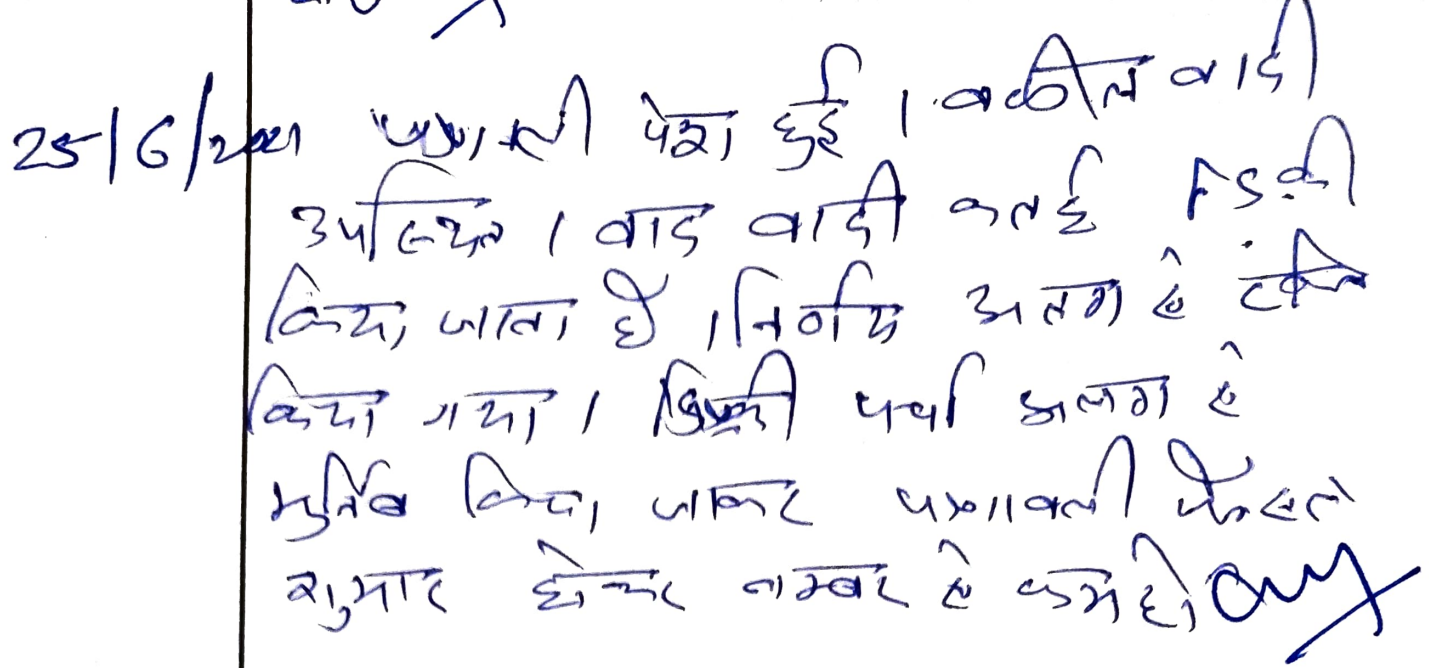 25/6/2021 पत्रावली पेश हुई । वकील वादी
उपस्थित । वाद वादी कतई F.S. की
किया जाता है । निर्णय अलग से टंकित
किया गया । डिक्री पर्चा अलग से
मुर्तिब किया जाकर पत्रावली फैसल
शुमार होकर नम्बर से कम हो